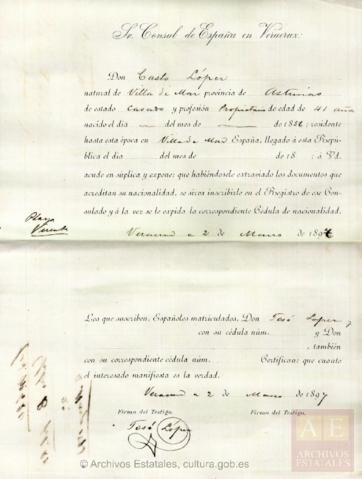 Sr. Consul de España en Veracruz:
Don Casto López
natural de Villa de Mar provincia de Asturias
de estado Casado y profesión Propietario de edad de 41 años
nacido el día — del mes de — de 1856; residente
hasta esta época en Villa de Mar España, llegado á esta Repú-
pública el día del mes de de 18 : á Vd.
acude en súplica y expone: que habiéndosele extraviado los documentos que
acreditan su nacionalidad, se sirva inscribirlo en el Registro de ese Con-
sulado y á la vez se le expida la correspondiente Cédula de nacionalidad.
Playa
Vicente
Veracruz á 2 de Marzo de 1897
Los que suscriben, Españoles matriculados, Don José López y
con su cédula núm. y Don
, también
con su correspondiente cédula núm. Certifican: que cuanto
el interesado manifiesta es la verdad.
Veracruz á 2 de Marzo de 1897
Firma del Testigo. Firma del Testigo.
José López
AE
ARCHIVOS
ESTATALES
© Archivos Estatales, cultura.gob.es